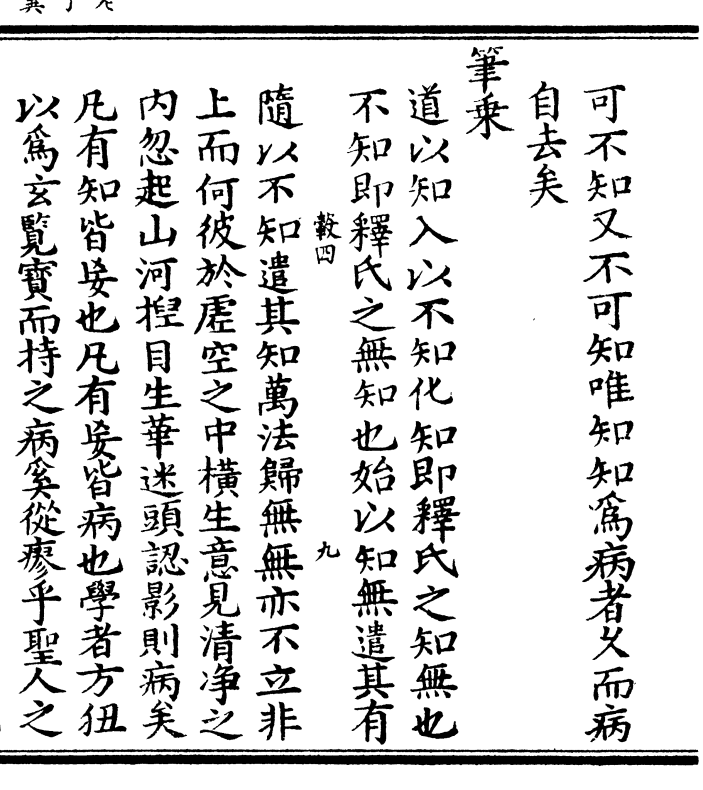 可不知又不可知唯知知爲病者乆而病
自去矣
筆乗
道以知入以不知化知即釋氏之知無也
不知即釋氏之無知也始以知無遣其有
轂四
九
隨以不知遣其知萬法歸無無亦不立非
上而何彼於虗空之中橫生意見清净之
内忽起山河揑目生華迷頭認影則病矣
凡有知皆妄也凡有妄皆病也學者方狃
以爲玄覽寳而持之病奚從瘳乎聖人之